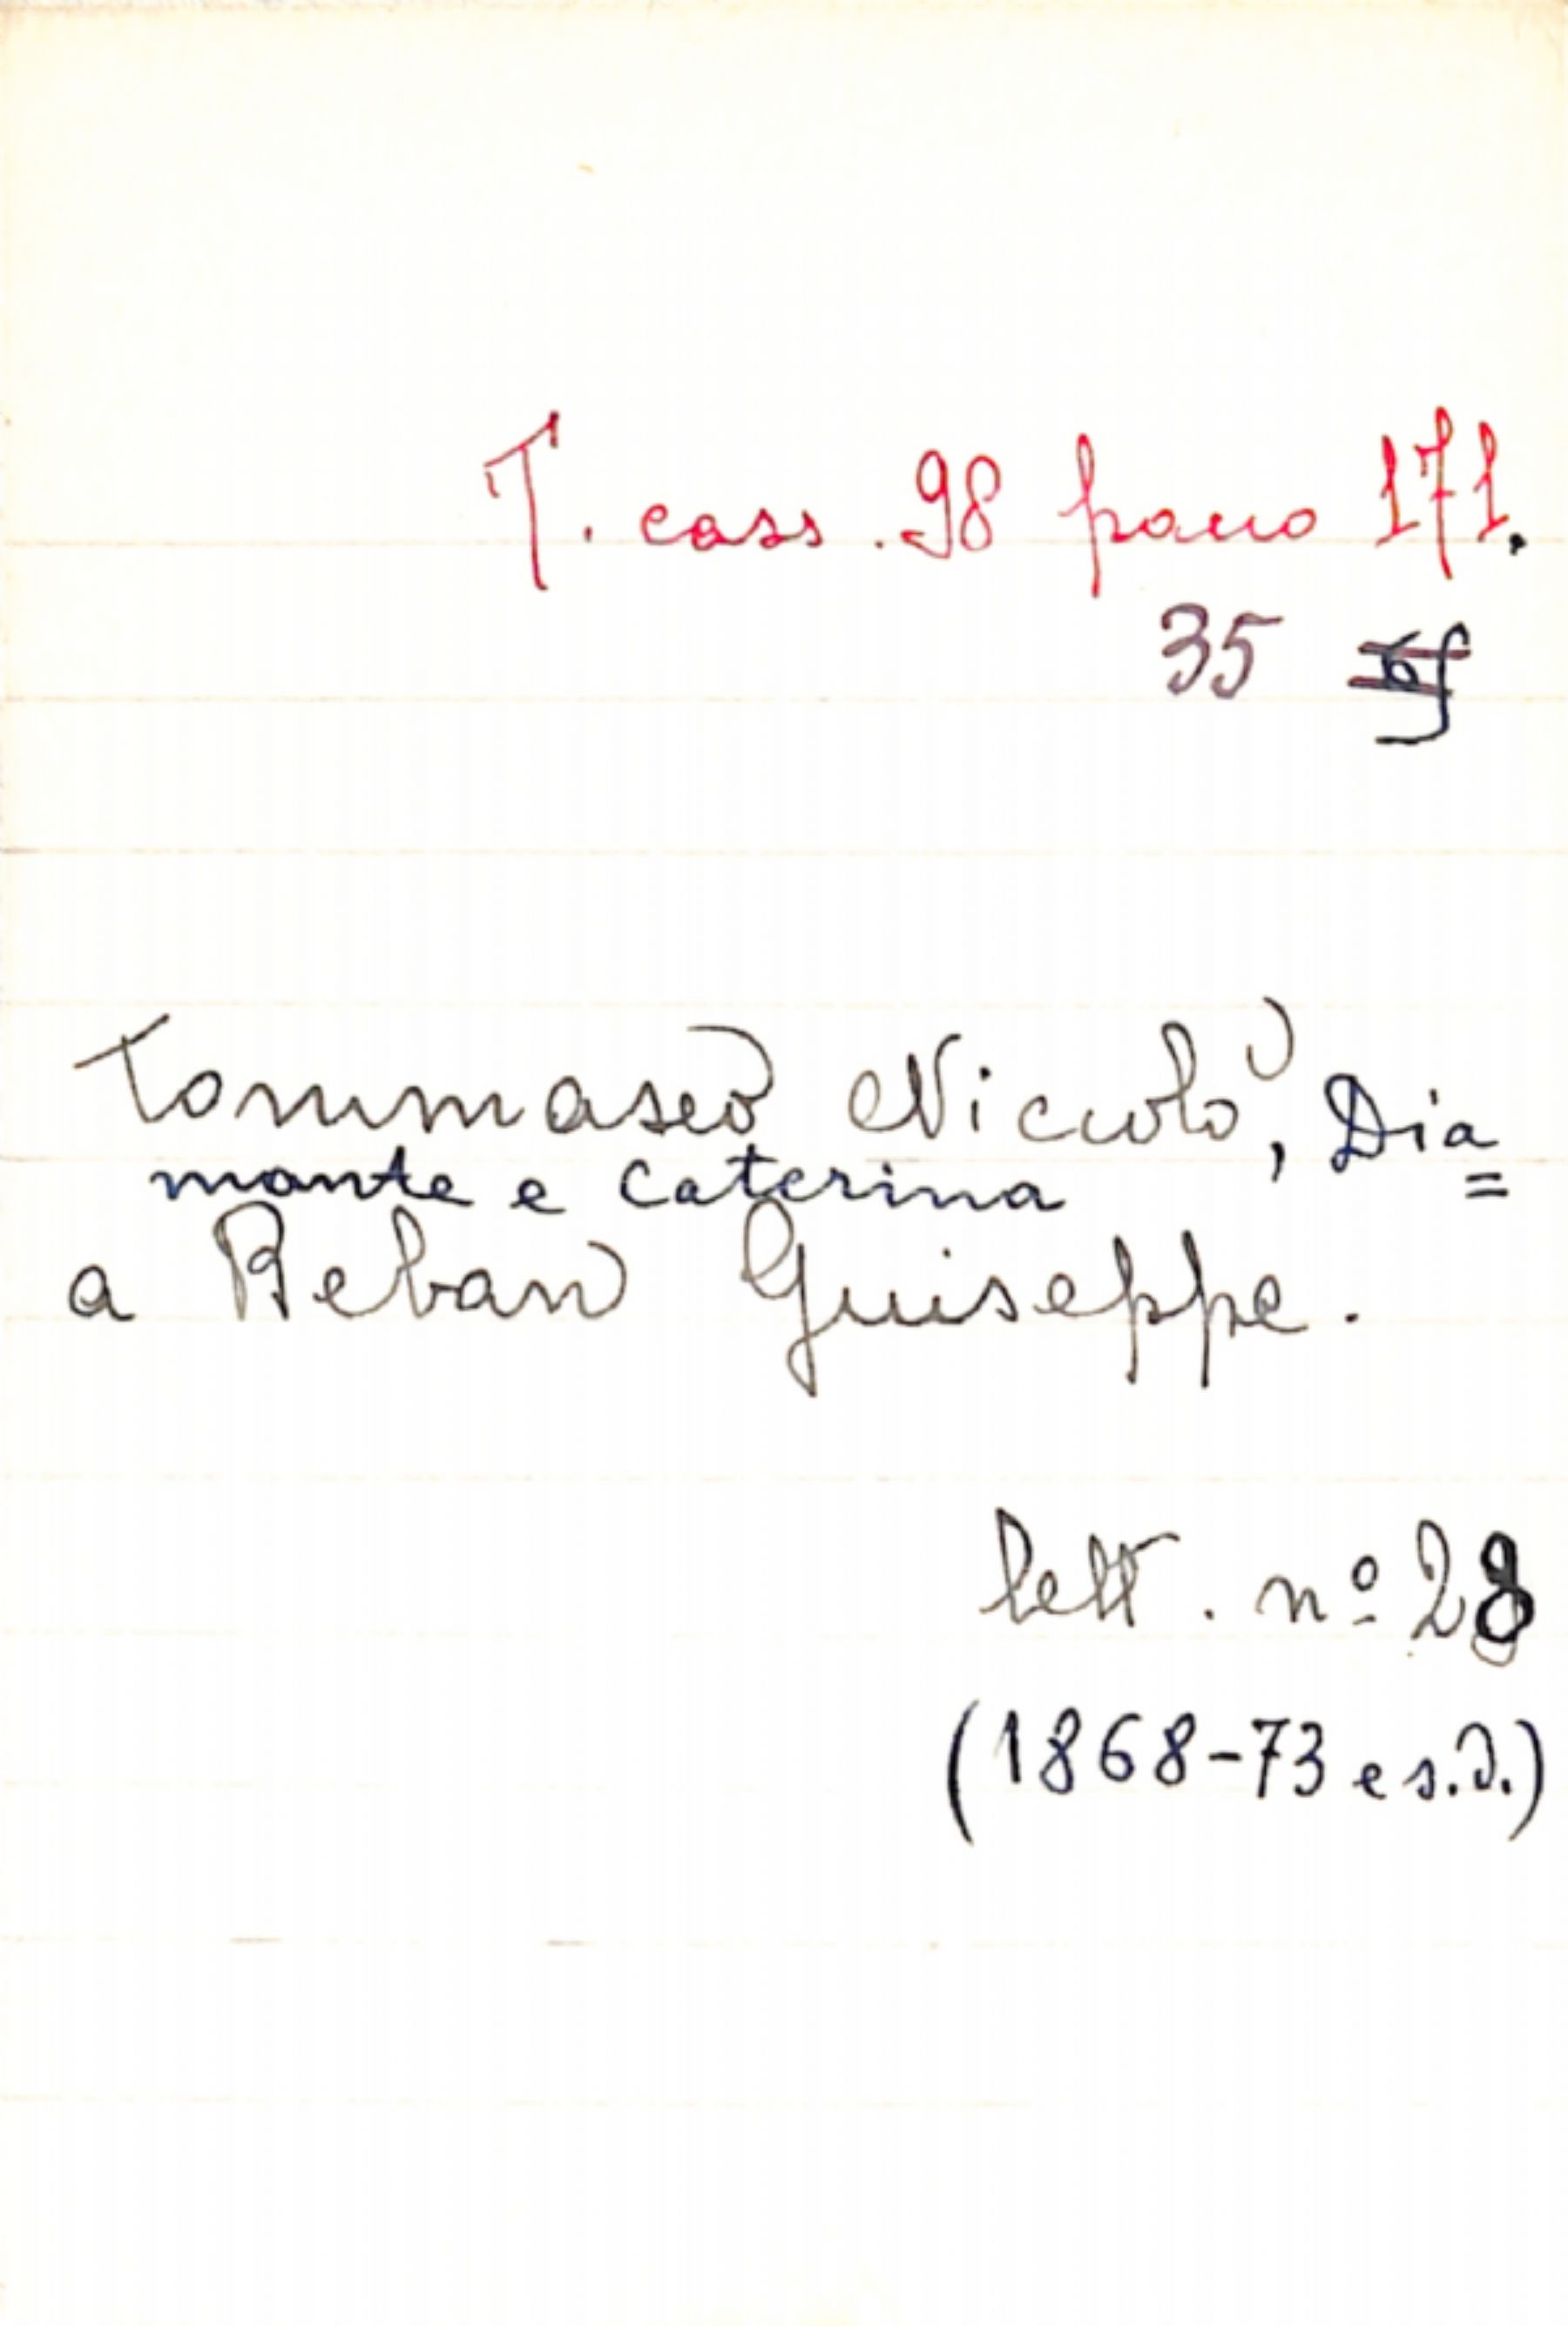 T. cass. 98 panno 171.
35
Tommaseo Niccolò, Dia=
mante e Caterina
a Beban Giuseppe.
lett. nº 28
(1868-73 e s.d.)